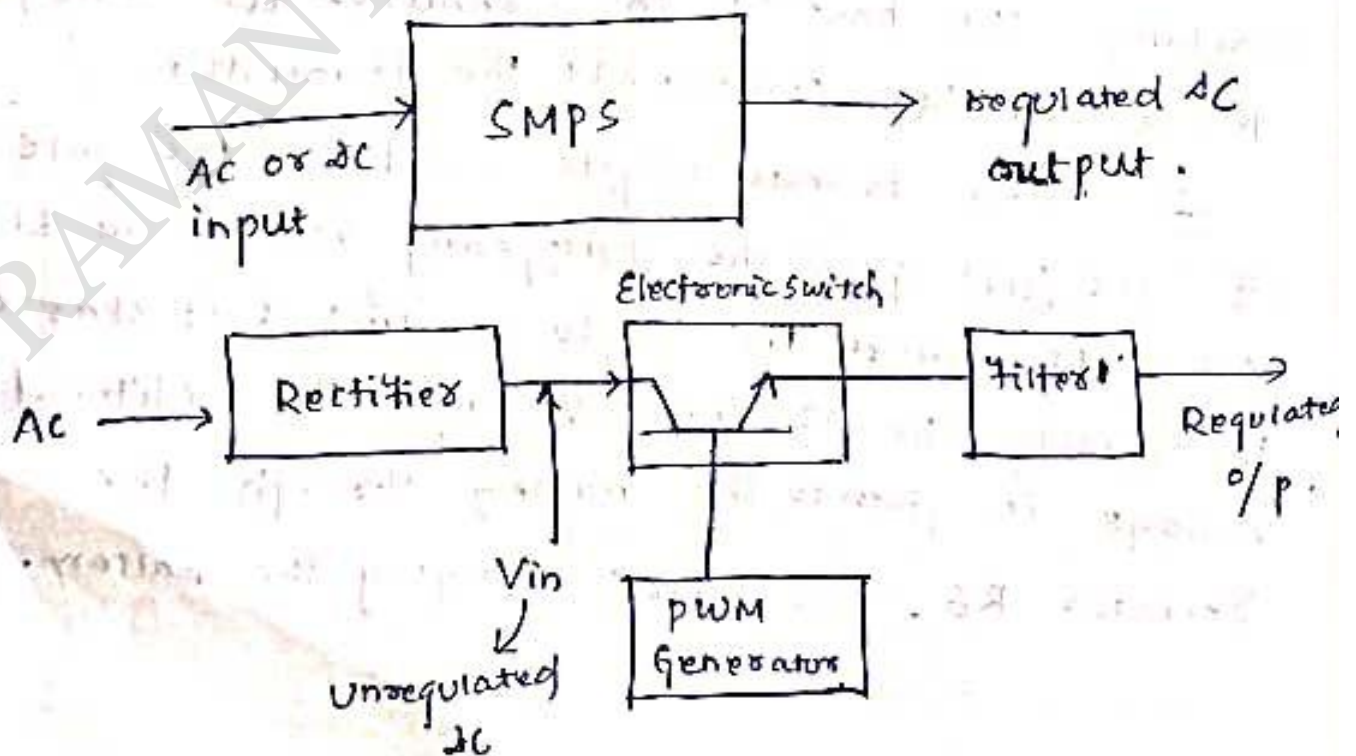 RAMAN
SMPS
AC or DC
input
regulated DC
output.
Electronic switch
AC
Rectifier
Filter
Regulated
o/p.
Vin
unregulated
DC
PWM
Generator